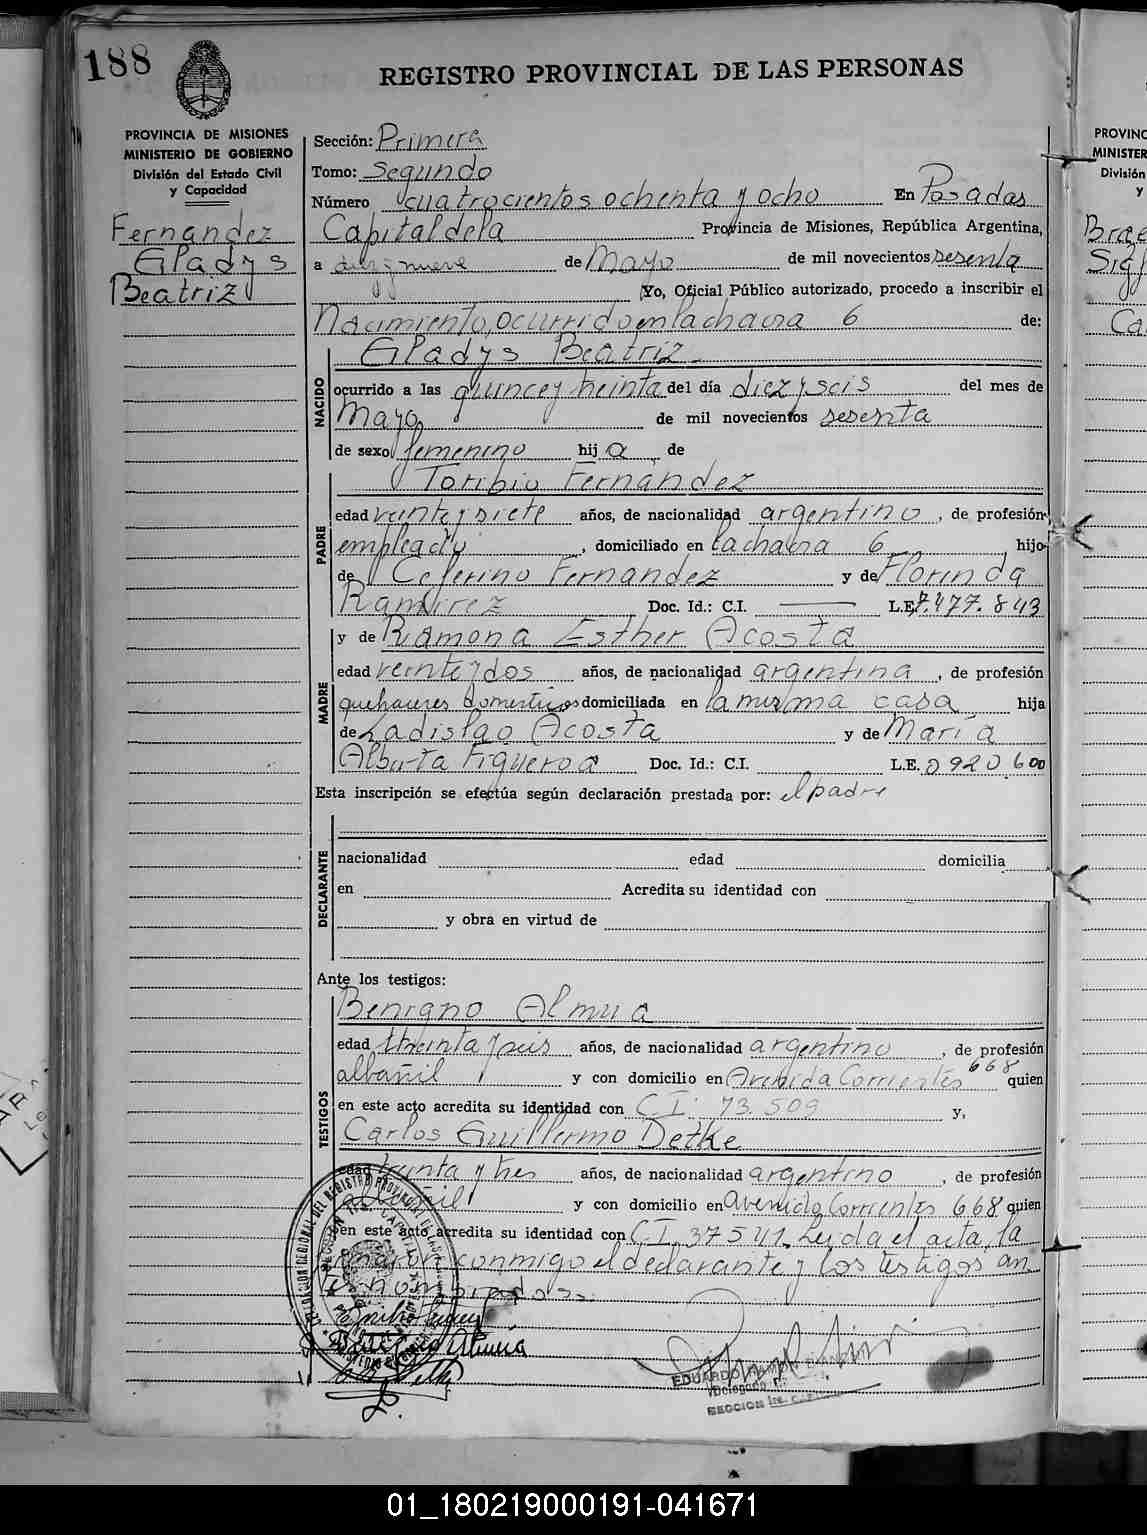 188
REGISTRO PROVINCIAL DE LAS PERSONAS
PROVINCIA DE MISIONES
MINISTERIO DE GOBIERNO
División del Estado Civil
y Capacidad
Fernandez
Gladys
Beatriz
Sección: Primera
Tomo: Segundo
Número cuatrocientos ochenta y ocho En Posadas
Capital de la Provincia de Misiones, República Argentina,
a diez y nueve de Mayo de mil novecientos sesenta
Yo, Oficial Público autorizado, procedo a inscribir el
Nacimiento, ocurrido en la chacra 6 de:
NACIDO
Gladys Beatriz
ocurrido a las quince y treinta del día diez y seis del mes de
Mayo de mil novecientos sesenta
de sexo femenino hij a de
PADRE
Toribio Fernández
edad veinte y siete años, de nacionalidad argentino, de profesión
empleado, domiciliado en la chacra 6, hijo
de Ceferino Fernandez y de Florinda
Ramirez Doc. Id.: C.I. L.E. 7.477.843
MADRE
y de Ramona Esther Acosta
edad veinte y dos años, de nacionalidad argentina, de profesión
quehaceres domesticos domiciliada en la misma casa hija
de Ladislao Acosta y de María
Alberta Figueroa Doc. Id.: C.I. L.E. 0920600
Esta inscripción se efectúa según declaración prestada por: el padre
DECLARANTE
nacionalidad edad domicilia
en Acredita su identidad con
y obra en virtud de
Ante los testigos:
TESTIGOS
Benigno Almua
edad treinta y seis años, de nacionalidad argentino, de profesión
albañil y con domicilio en Avenida Corrientes 668 quien
en este acto acredita su identidad con C.I. 73.509 y,
Carlos Guillermo Detke
edad treinta y tres años, de nacionalidad argentino, de profesión
albañil y con domicilio en avenida Corrientes 668 quien
en este acto acredita su identidad con C.I. 37541. Leida el acta, la
firmaron conmigo el declarante y los testigos an
te nombrados.
EDUARDO
Delegado
SECCION 1ra.
PROVINC
MINISTER
División
y
01_180219000191-041671